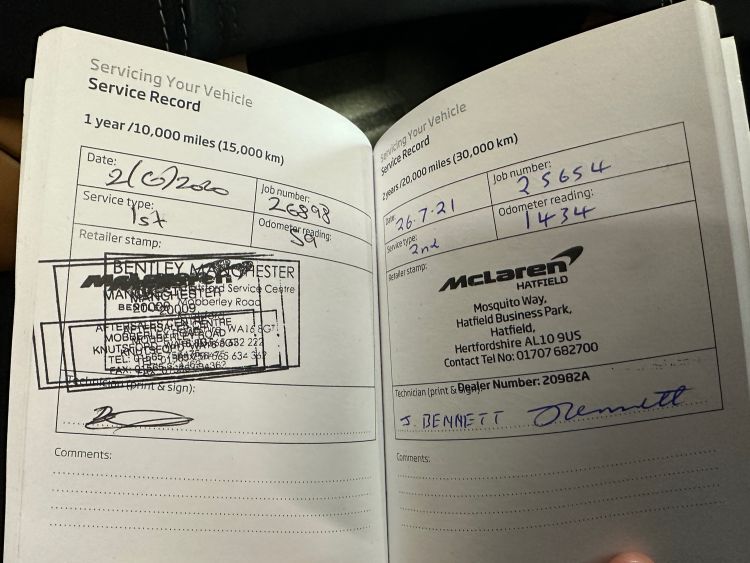 Servicing Your Vehicle
Service Record
1 year/10,000 miles (15,000 km)
Date:
Job number:
26898
Service type:
1st
Odometer reading:
59
Retailer stamp:
BENTLEY MANCHESTER
McLaren
MANCHESTER
Mobberley Road
AFTERSALES CENTRE
Technician (print & sign):
Comments:
Servicing Your Vehicle
Service Record
2 years/20,000 miles (30,000 km)
Date:
26.7.21
Job number:
25654
Service type:
2nd
Odometer reading:
1434
Retailer stamp:
McLaren
HATFIELD
Mosquito Way,
Hatfield Business Park,
Hatfield,
Hertfordshire AL10 9US
Contact Tel No: 01707 682700
Dealer Number: 20982A
Technician (print & sign):
J. BENNETT JBennett
Comments: